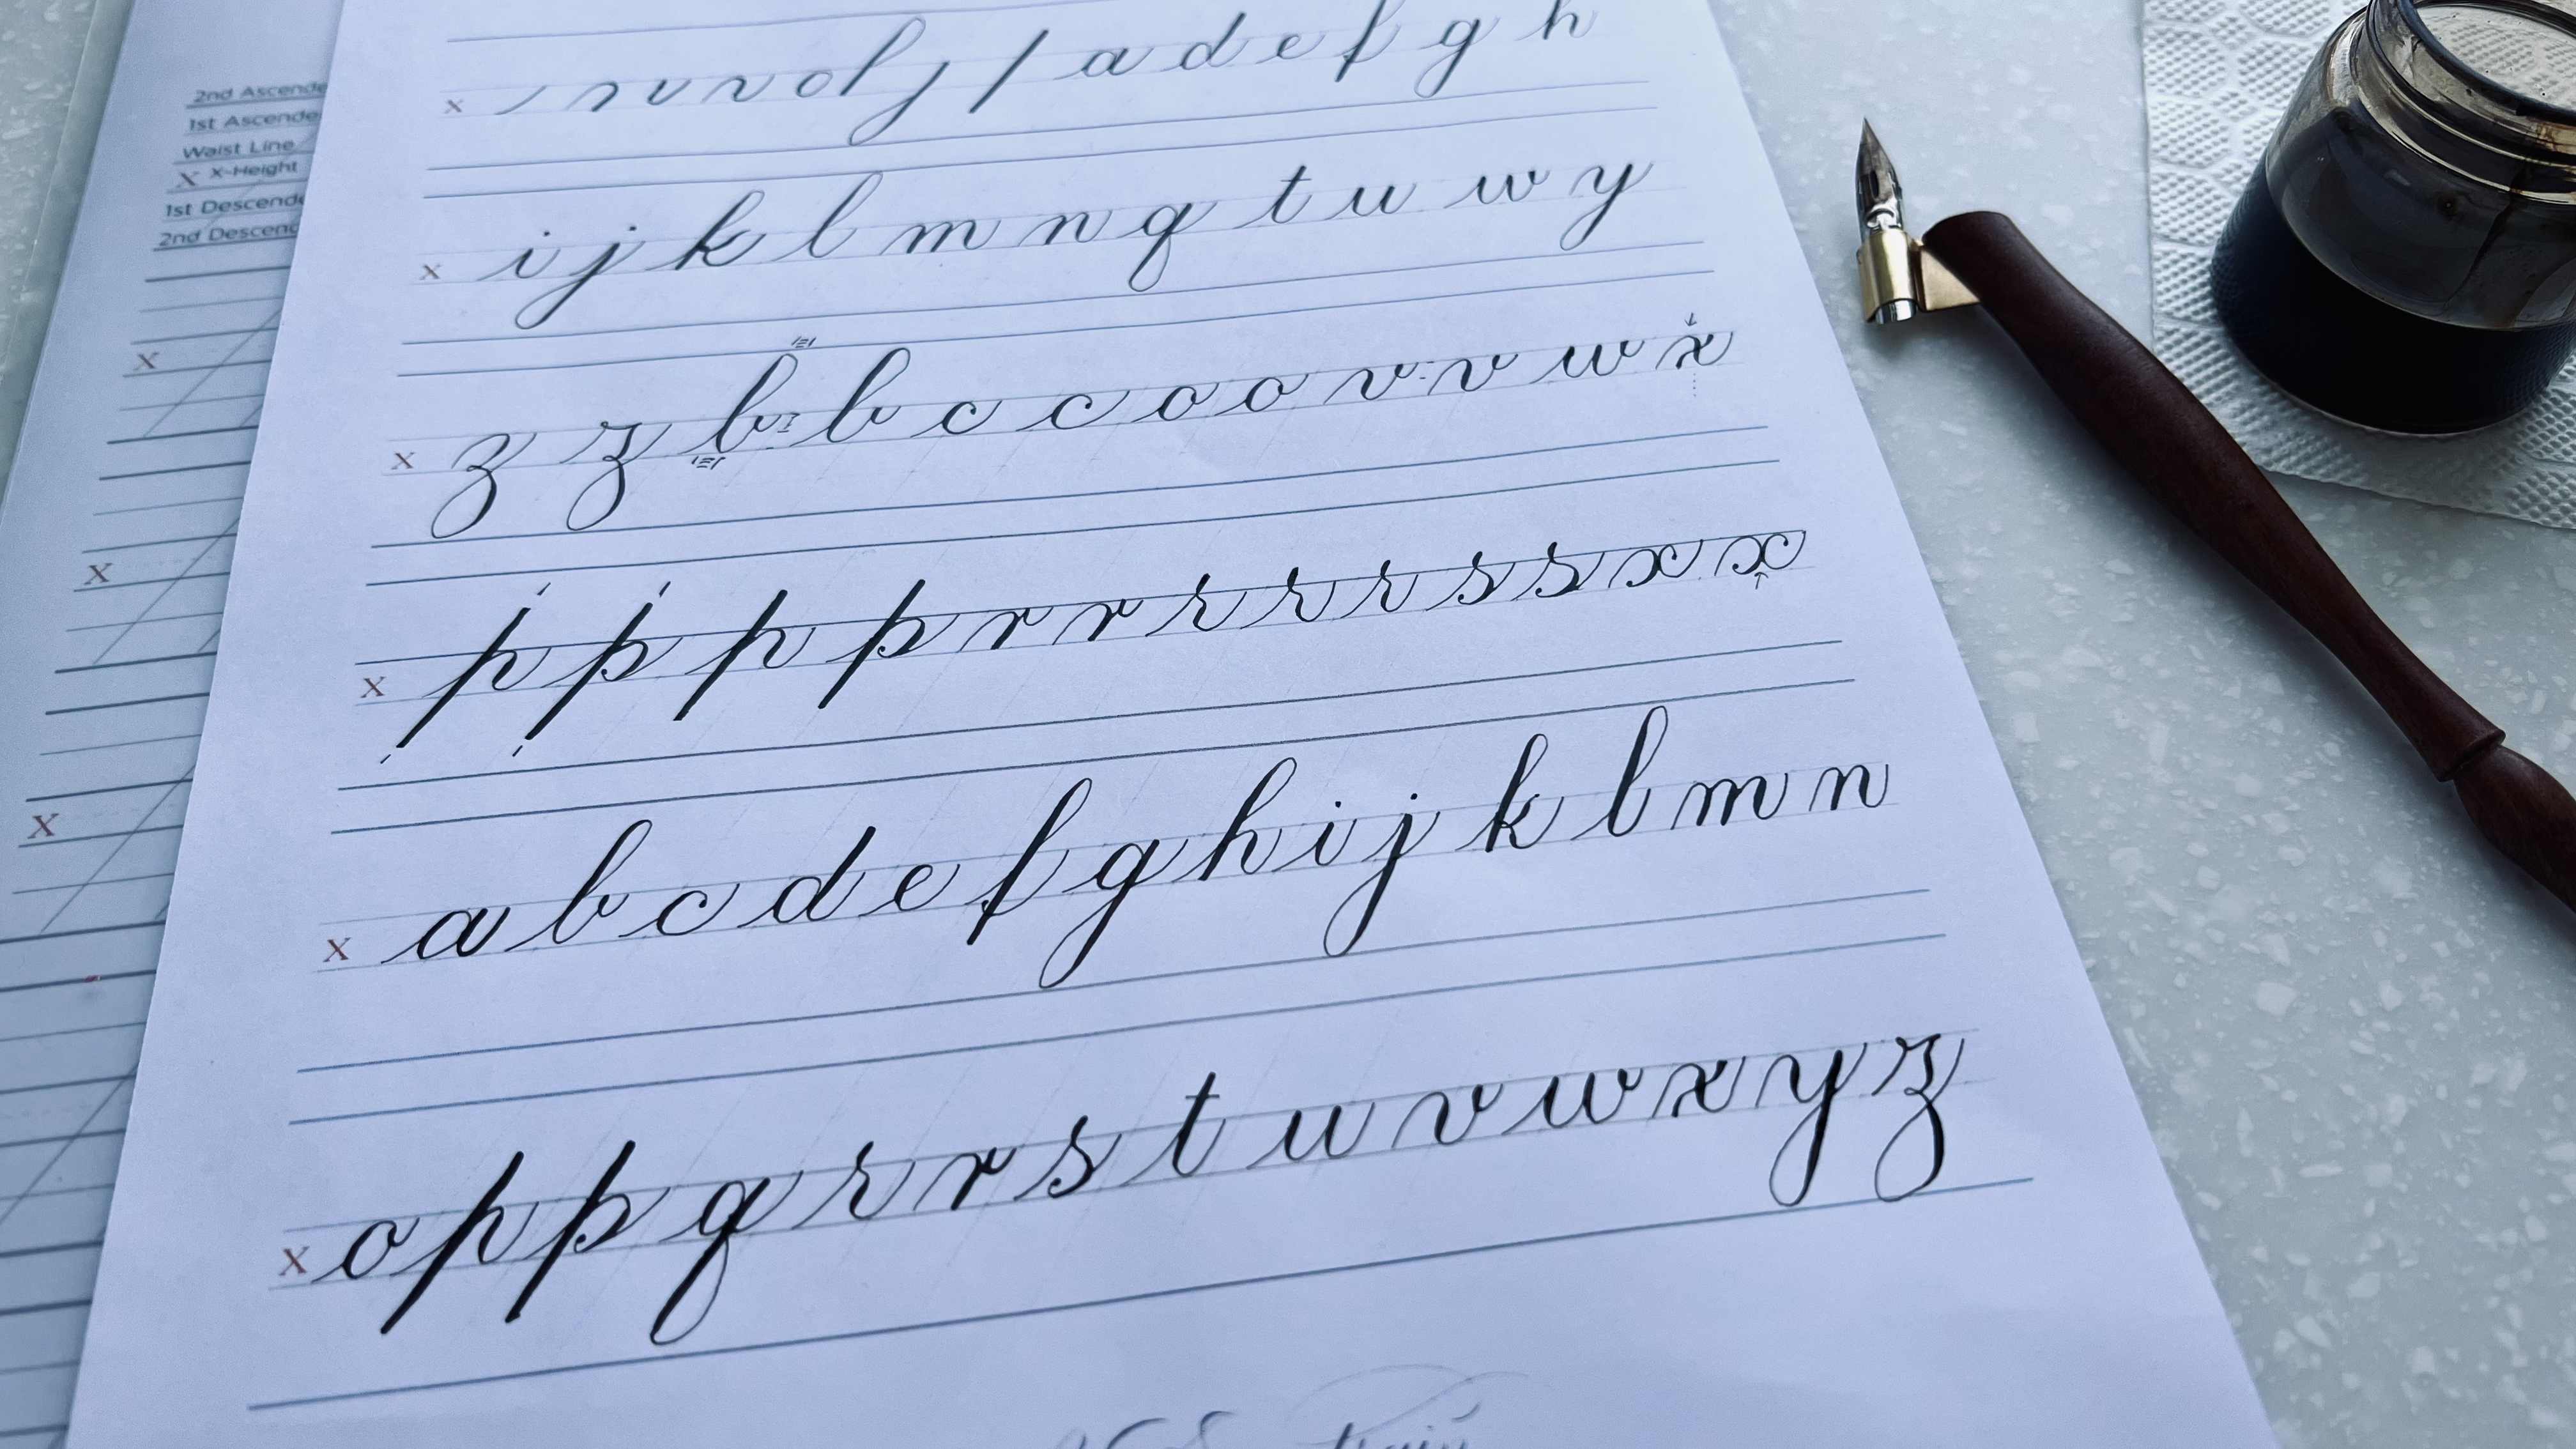 2nd Ascende
1st Ascende
Waist Line
X X-Height
1st Descende
2nd Descend
x
x
x
x a d e f g h
x i j k l m n q t u w y
x z z b b c c o o v v w x
x p p p p r r r r r s s x x
x a b c d e f g h i j k l m n
x o p p q r r s t u v w x y z